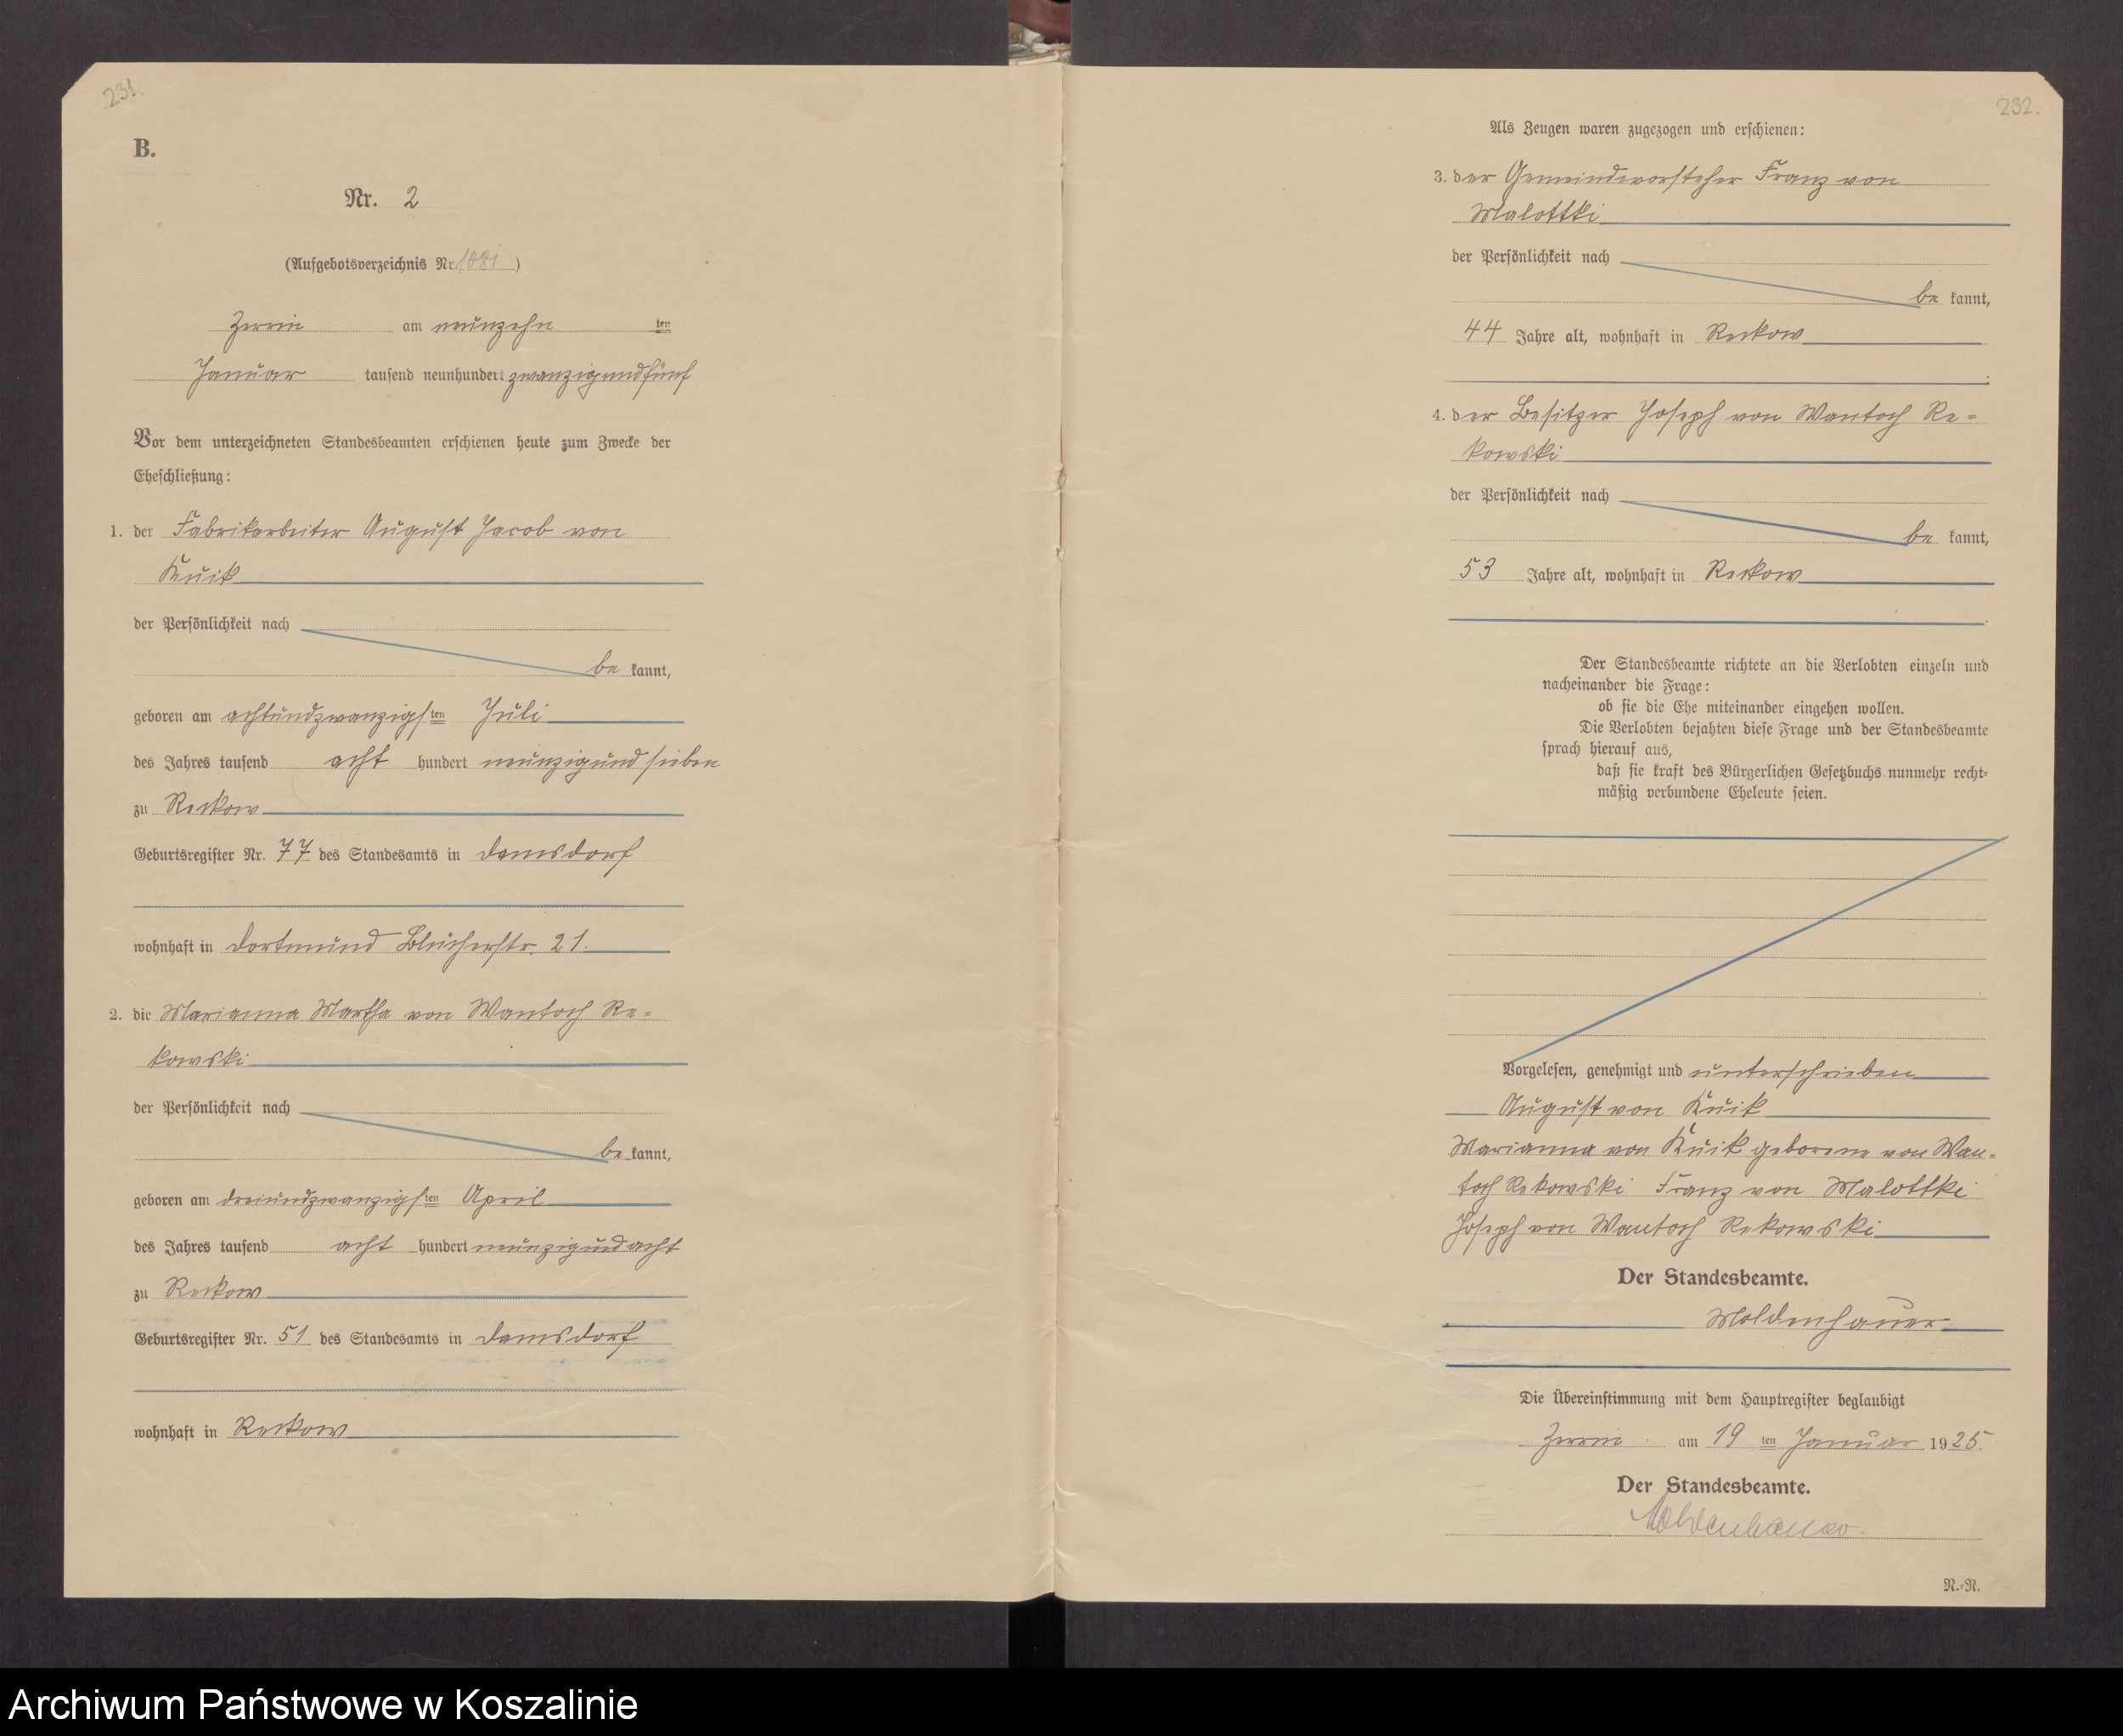 231.
B.
Nr. 2
(Aufgebotsverzeichnis Nr. )
Zerrin am neunzehn ten
Januar tausend neunhundert zwanzigundfünf
Vor dem unterzeichneten Standesbeamten erschienen heute zum Zwecke der
Eheschließung:
1. der Fabrikarbeiter August Jacob von
Kuik
der Persönlichkeit nach
be kannt,
geboren am achtundzwanzigsten Juli
des Jahres tausend acht hundert neunzigundsieben
zu Reckow
Geburtsregister Nr. 77 des Standesamts in Damsdorf
wohnhaft in Dortmund Blücherstr. 21.
2. die Marianna Martha von Wantoch Re=
kowski
der Persönlichkeit nach
be kannt,
geboren am dreiundzwanzigsten April
des Jahres tausend acht hundert neunzigundacht
zu Reckow
Geburtsregister Nr. 51 des Standesamts in Damsdorf
wohnhaft in Reckow
232.
Als Zeugen waren zugezogen und erschienen:
3. der Gemeindevorsteher Franz von
Malottki
der Persönlichkeit nach
be kannt,
44 Jahre alt, wohnhaft in Reckow
.
4. der Besitzer Joseph von Wantoch Re=
kowski
der Persönlichkeit nach
be kannt,
53 Jahre alt, wohnhaft in Reckow
.
Der Standesbeamte richtete an die Verlobten einzeln und
nacheinander die Frage:
ob sie die Ehe miteinander eingehen wollen.
Die Verlobten bejahten diese Frage und der Standesbeamte
sprach hierauf aus,
daß sie kraft des Bürgerlichen Gesetzbuchs nunmehr recht=
mäßig verbundene Eheleute seien.
Vorgelesen, genehmigt und unterschrieben
August von Kuik
Marianna von Kuik geborene von Wan-
toch Rekowski Franz von Malottki
Joseph von Wantoch Rekowski
Der Standesbeamte.
Moldenhauer
Die Übereinstimmung mit dem Hauptregister beglaubigt
Zerrin am 19 ten Januar 1925.
Der Standesbeamte.
Moldenhauer.
N.=R.
Archiwum Państwowe w Koszalinie